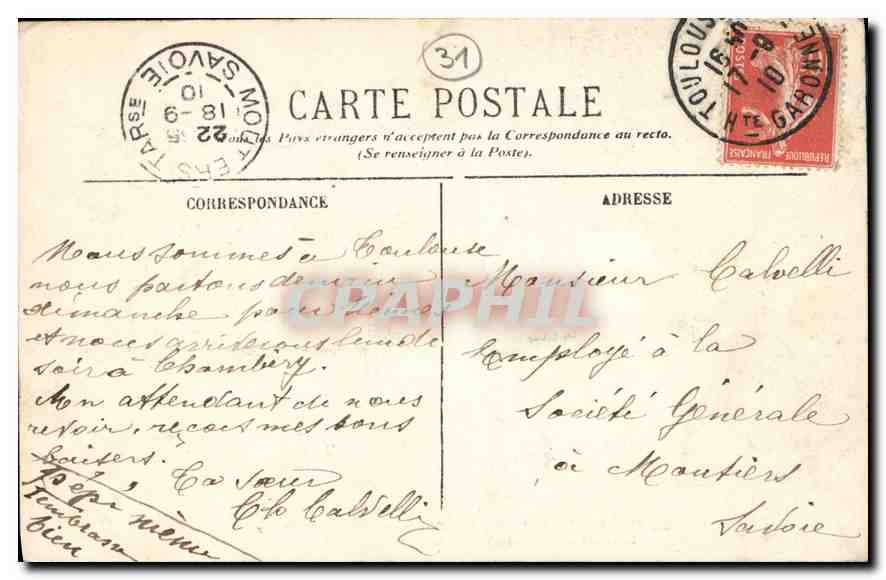 31
CARTE POSTALE
Tous les Pays étrangers n'acceptent pas la Correspondance au recto.
(Se renseigner à la Poste).
MOUTIERS TARSE SAVOIE
22
18 -9
10
TOULOUSE HTE GARONNE
17 -9
10
REPUBLIQUE FRANÇAISE
POSTES
CORRESPONDANCE
Nous sommes à Toulouse
nous partons demain
dimanche pour
et nous arriverons lundi
soir à Chambéry.
En attendant de nous
revoir, reçois mes bons
baisers.
Ta sœur
Cl. Calvelli
Pépé même
t'embrasse
bien
ADRESSE
Monsieur Calvelli
Employé à la
Société Générale
à Moutiers
Savoie
CPAPHIL